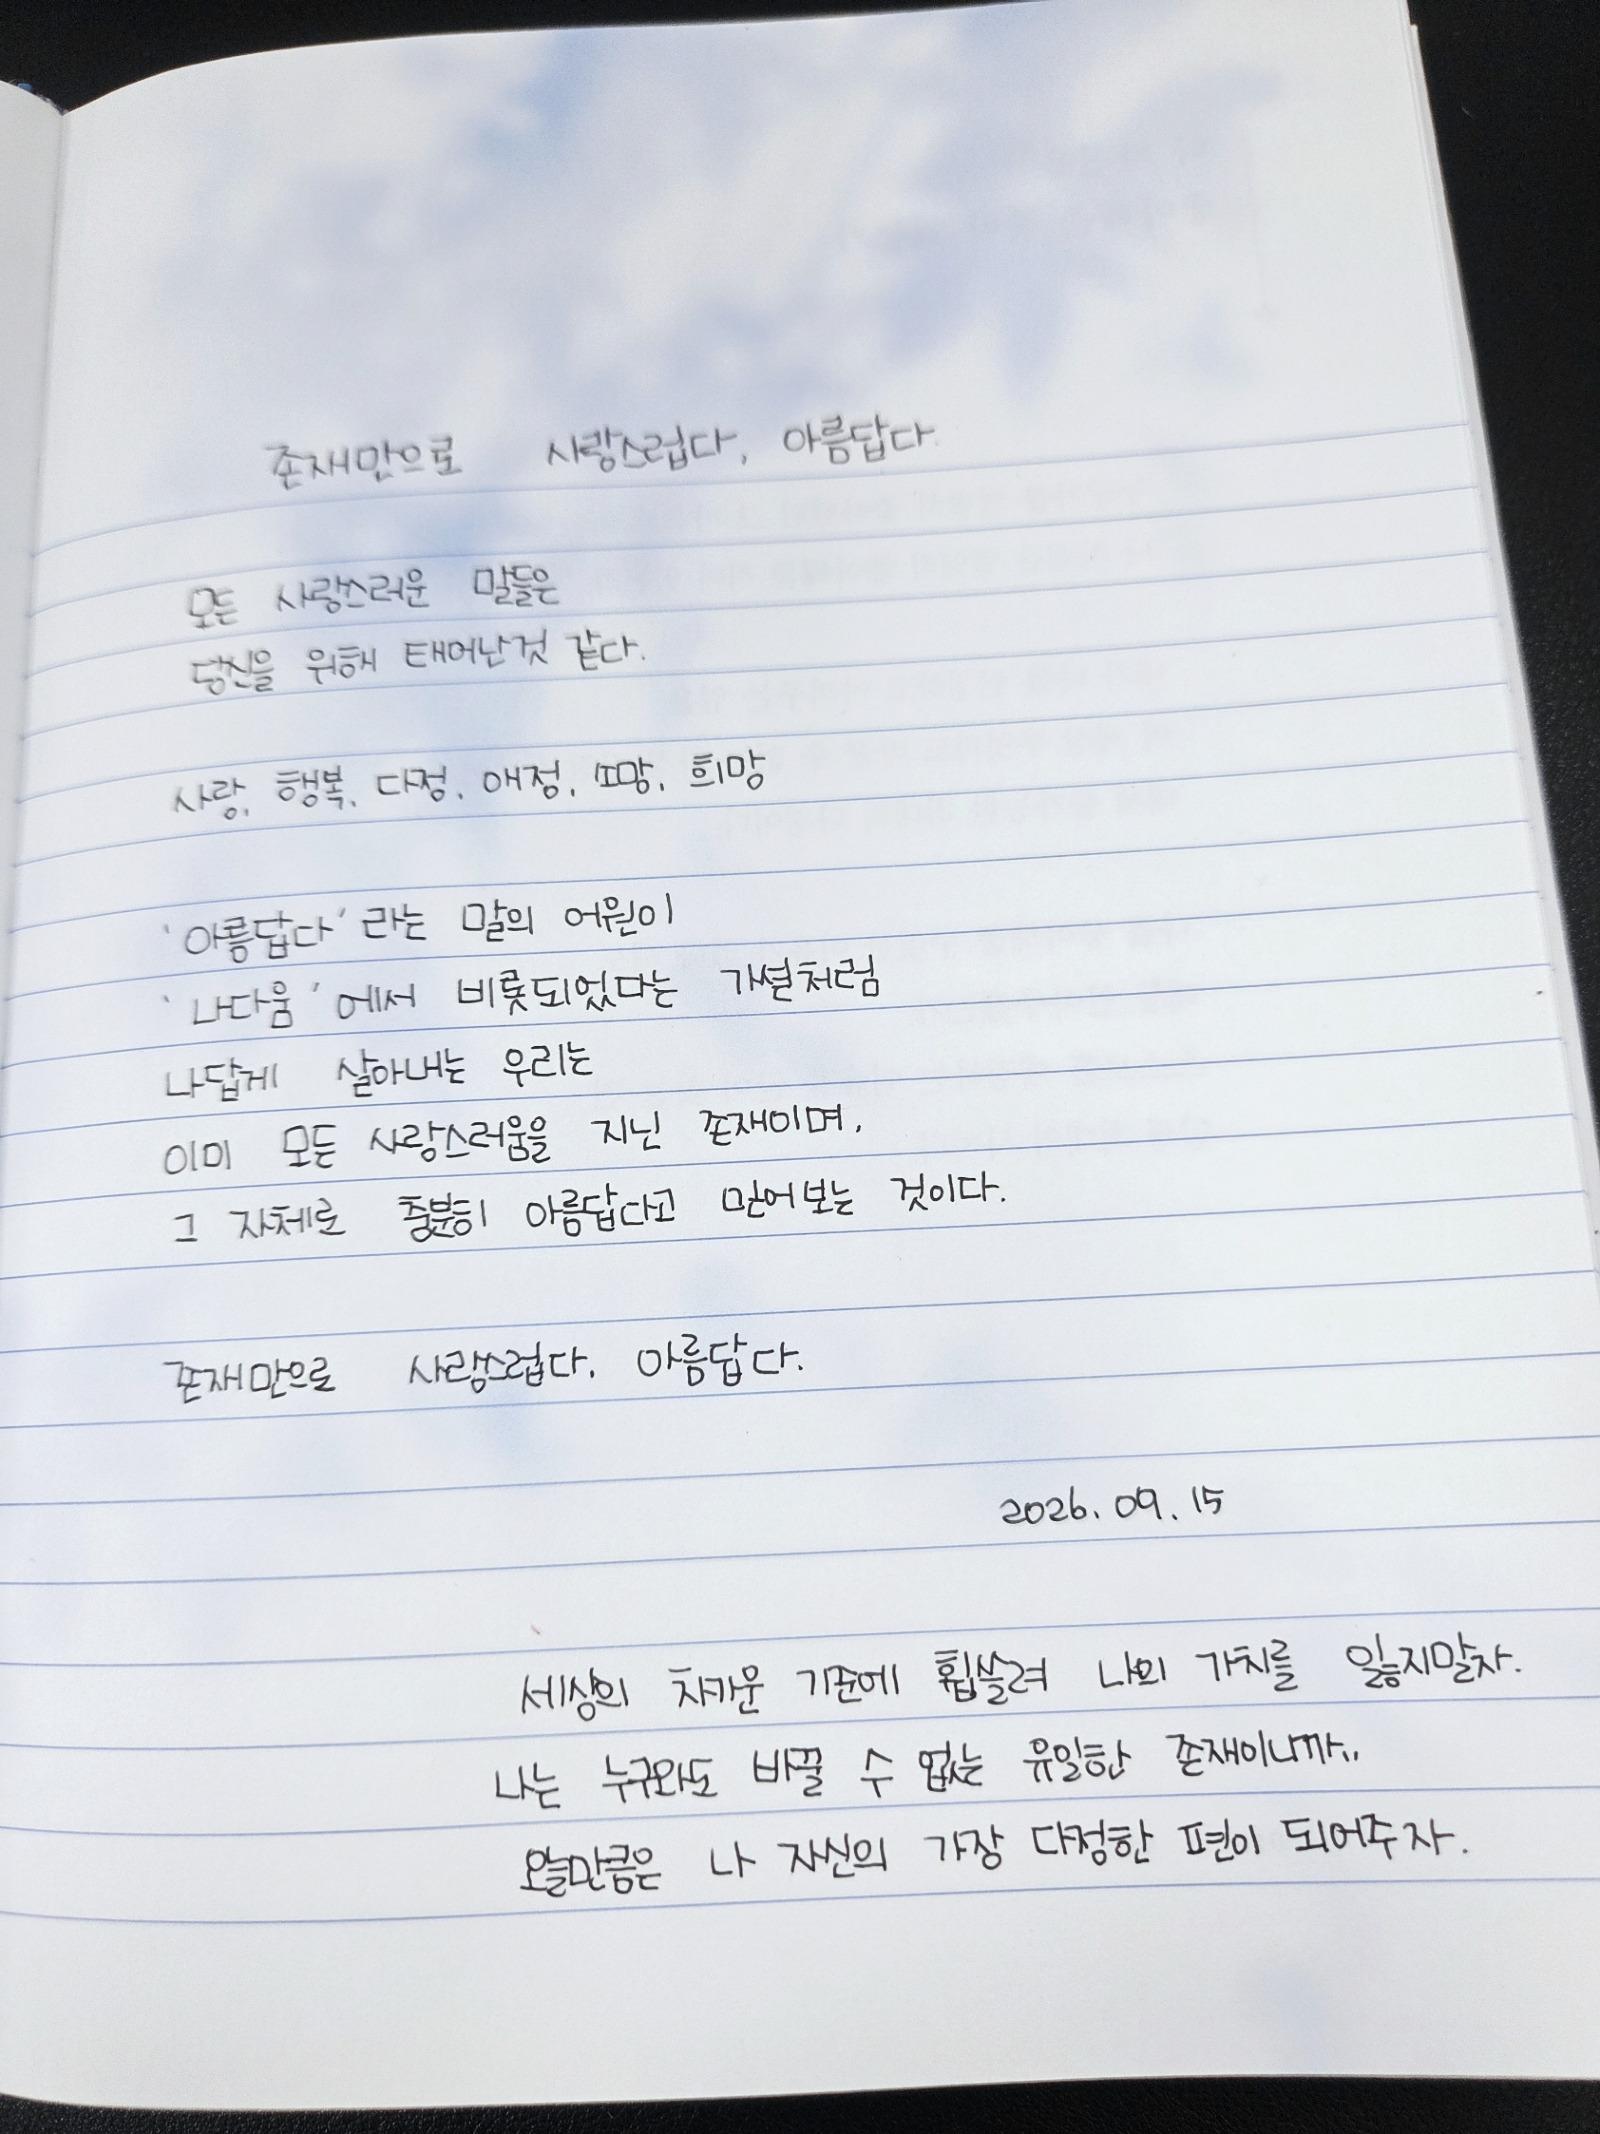 존재만으로 사랑스럽다, 아름답다.
모든 사랑스러운 말들은
당신을 위해 태어난것 같다.
사랑, 행복, 다정, 애정, 소망, 희망
'아름답다'라는 말의 어원이
'나다움'에서 비롯되었다는 가설처럼
나답게 살아내는 우리는
이미 모든 사랑스러움을 지닌 존재이며,
그 자체로 충분히 아름답다고 믿어보는 것이다.
존재만으로 사랑스럽다. 아름답다.
2026. 09. 15
세상의 차가운 기준에 휩쓸려 나의 가치를 잃지말자.
나는 누구와도 바꿀 수 없는 유일한 존재이니까..
오늘만큼은 나 자신의 가장 다정한 편이 되어주자.